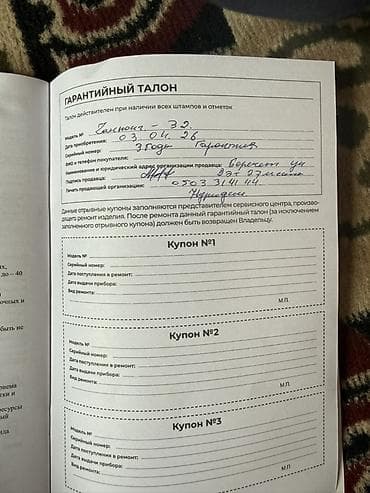 ГАРАНТИЙНЫЙ ТАЛОН
Талон действителен при наличии всех штампов и отметок
Модель № - 32
Дата приобретения: 03.04.26
Серийный номер: 3 года Гарантия
ФИО и телефон покупателя:
Наименование и юридический адрес организации продавца:
Подпись продавца:
Печать продающей организации: 0503 314114
Данные отрывные купоны заполняются представителем сервисного центра, произво-
дящего ремонт изделия. После ремонта данный гарантийный талон (за исключением
заполненного отрывного купона) должен быть возвращен Владельцу.
Купон №1
Модель №
Серийный номер:
Дата поступления в ремонт:
Дата выдачи прибора:
Вид ремонта:
М.П.
Купон №2
Модель №
Серийный номер:
Дата поступления в ремонт:
Дата выдачи прибора:
Вид ремонта:
М.П.
Купон №3
Модель №
Серийный номер:
Дата поступления в ремонт:
Дата выдачи прибора:
Вид ремонта:
М.П.
до – 40
быть не